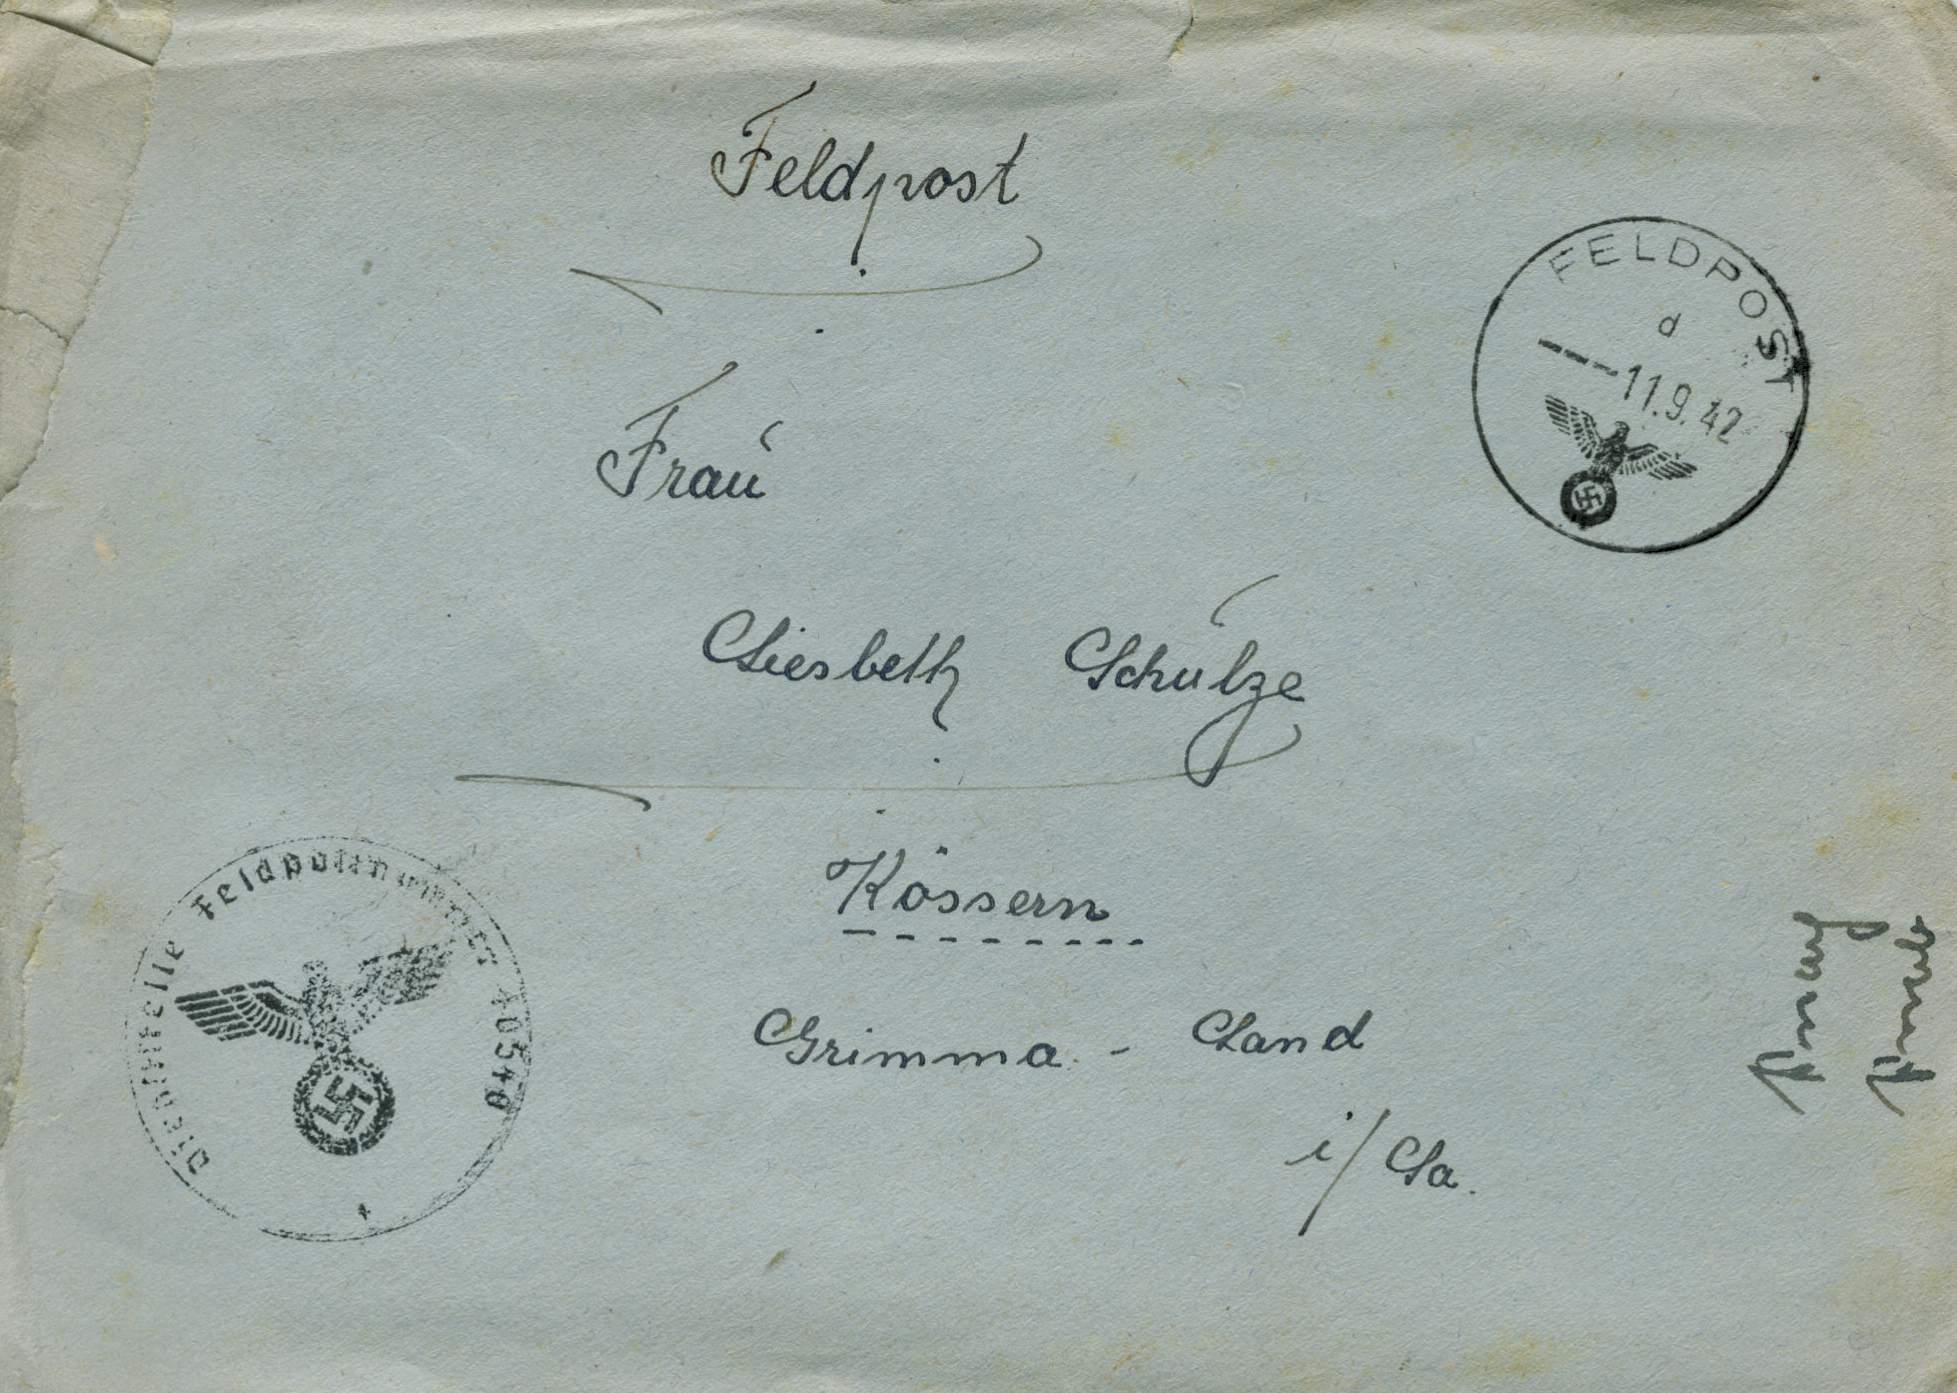 Feldpost
FELDPOST
d
---11.9.42
Frau
Liesbeth Schulze
Kössern
Grimma - Land
i/Sa.
Dienststelle Feldpostnummer 40540